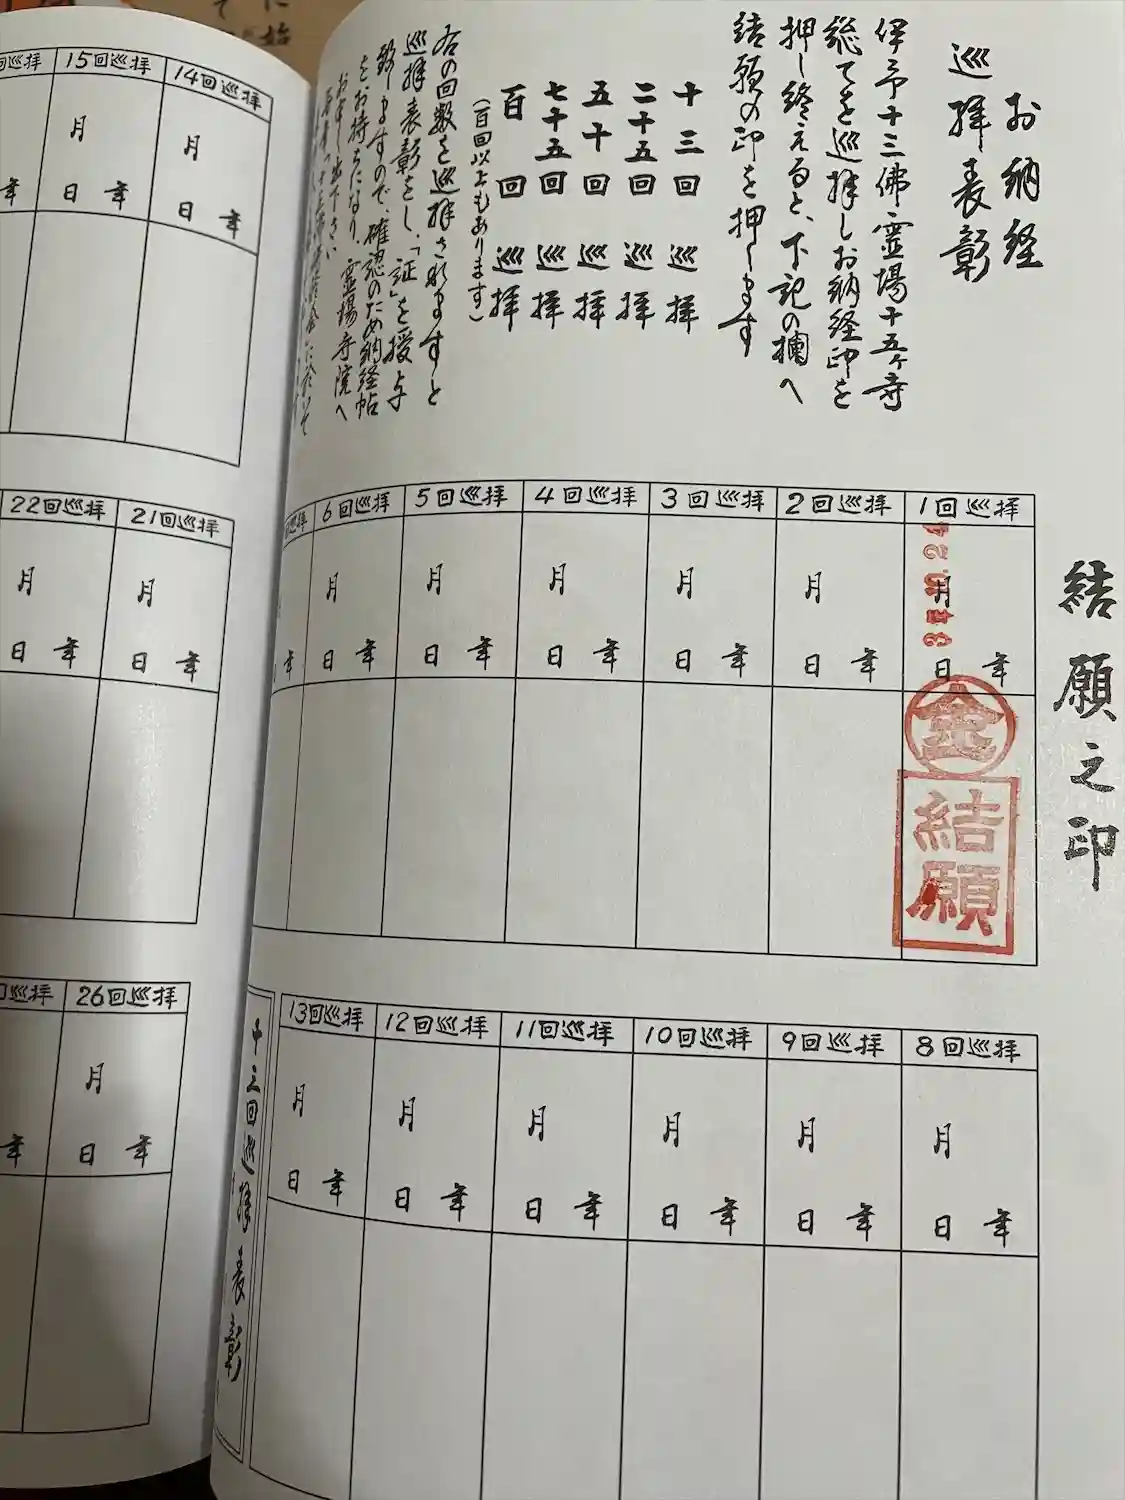 お納経
巡拝表彰
伊予十三佛霊場十五ヶ寺
総てを巡拝しお納経印を
押し終えると、下記の欄へ
結願の印を押します
十三回 巡拝
二十五回 巡拝
五十回 巡拝
七十五回 巡拝
百回 巡拝
(百回以上もあります)
右の回数を巡拝されますと
巡拝表彰をし、「証」を授与
致しますので、確認のため納経帖
をお持ちになり、霊場寺院へ
お申し出下さい
結願之印
1回巡拝
月
日 年
結願
2回巡拝
月
日 年
3回巡拝
月
日 年
4回巡拝
月
日 年
5回巡拝
月
日 年
6回巡拝
月
日 年
巡拝
年
8回巡拝
月
日 年
9回巡拝
月
日 年
10回巡拝
月
日 年
11回巡拝
月
日 年
12回巡拝
月
日 年
13回巡拝
月
日 年
十三回巡拝表彰
14回巡拝
月
日 年
15回巡拝
月
日 年
回巡拝
年
21回巡拝
月
日 年
22回巡拝
月
日 年
26回巡拝
月
日 年
回巡拝
年